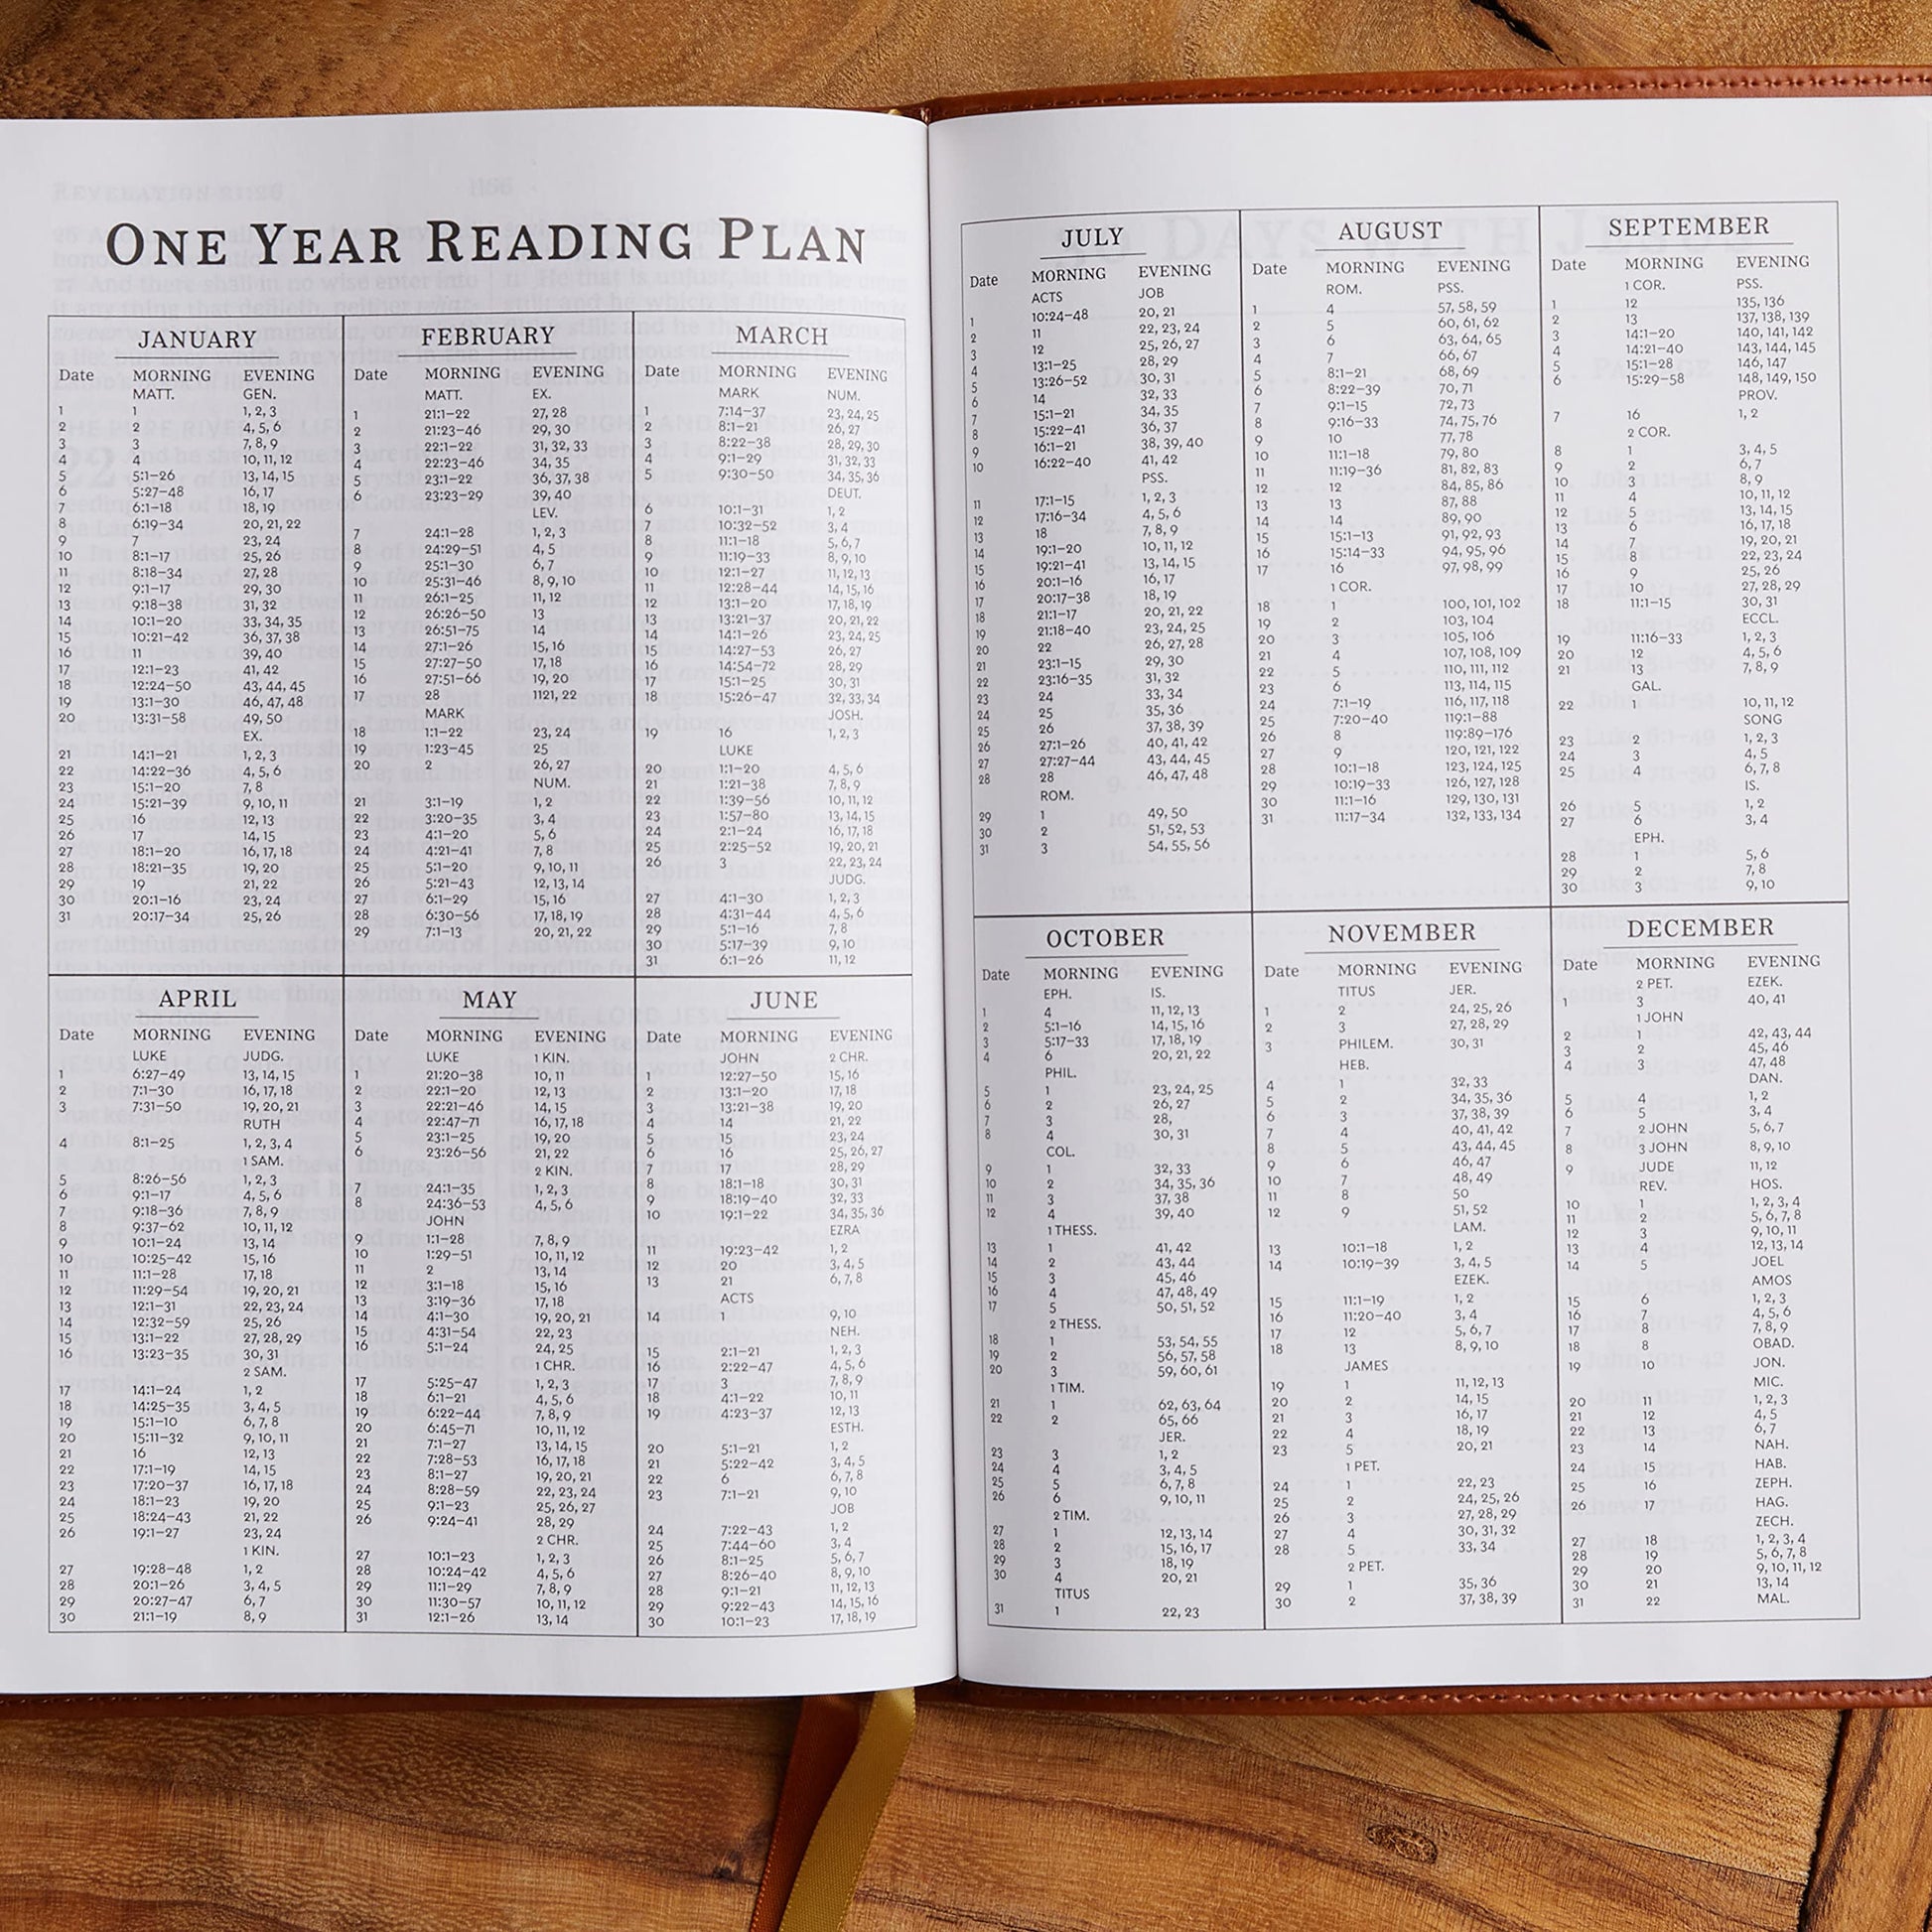 ONE YEAR READING PLAN
JANUARY
Date MORNING EVENING
MATT. GEN.
1 1 1, 2, 3
2 2 4, 5, 6
3 3 7, 8, 9
4 4 10, 11, 12
5 5:1-26 13, 14, 15
6 5:27-48 16, 17
7 6:1-18 18, 19
8 6:19-34 20, 21, 22
9 7 23, 24
10 8:1-17 25, 26
11 8:18-34 27, 28
12 9:1-17 29, 30
13 9:18-38 31, 32
14 10:1-20 33, 34, 35
15 10:21-42 36, 37, 38
16 11 39, 40
17 12:1-23 41, 42
18 12:24-50 43, 44, 45
19 13:1-30 46, 47, 48
20 13:31-58 49, 50
EX.
21 14:1-21 1, 2, 3
22 14:22-36 4, 5, 6
23 15:1-20 7, 8
24 15:21-39 9, 10, 11
25 16 12, 13
26 17 14, 15
27 18:1-20 16, 17, 18
28 18:21-35 19, 20
29 19 21, 22
30 20:1-16 23, 24
31 20:17-34 25, 26
FEBRUARY
Date MORNING EVENING
MATT. EX.
1 21:1-22 27, 28
2 21:23-46 29, 30
3 22:1-22 31, 32, 33
4 22:23-46 34, 35
5 23:1-22 36, 37, 38
6 23:23-29 39, 40
LEV.
7 24:1-28 1, 2, 3
8 24:29-51 4, 5
9 25:1-30 6, 7
10 25:31-46 8, 9, 10
11 26:1-25 11, 12
12 26:26-50 13
13 26:51-75 14
14 27:1-26 15, 16
15 27:27-50 17, 18
16 27:51-66 19, 20
17 28 1121, 22
MARK
18 1:1-22 23, 24
19 1:23-45 25
20 2 26, 27
NUM.
21 3:1-19 1, 2
22 3:20-35 3, 4
23 4:1-20 5, 6
24 4:21-41 7, 8
25 5:1-20 9, 10, 11
26 5:21-43 12, 13, 14
27 6:1-29 15, 16
28 6:30-56 17, 18, 19
29 7:1-13 20, 21, 22
MARCH
Date MORNING EVENING
MARK NUM.
1 7:14-37 23, 24, 25
2 8:1-21 26, 27
3 8:22-38 28, 29, 30
4 9:1-29 31, 32, 33
5 9:30-50 34, 35, 36
DEUT.
6 10:1-31 1, 2
7 10:32-52 3, 4
8 11:1-18 5, 6, 7
9 11:19-33 8, 9, 10
10 12:1-27 11, 12, 13
11 12:28-44 14, 15, 16
12 13:1-20 17, 18, 19
13 13:21-37 20, 21, 22
14 14:1-26 23, 24, 25
15 14:27-53 26, 27
16 14:54-72 28, 29
17 15:1-25 30, 31
18 15:26-47 32, 33, 34
JOSH.
19 16 1, 2, 3
LUKE
20 1:1-20 4, 5, 6
21 1:21-38 7, 8, 9
22 1:39-56 10, 11, 12
23 1:57-80 13, 14, 15
24 2:1-24 16, 17, 18
25 2:25-52 19, 20, 21
26 3 22, 23, 24
JUDG.
27 4:1-30 1, 2, 3
28 4:31-44 4, 5, 6
29 5:1-16 7, 8
30 5:17-39 9, 10
31 6:1-26 11, 12
APRIL
Date MORNING EVENING
LUKE JUDG.
1 6:27-49 13, 14, 15
2 7:1-30 16, 17, 18
3 7:31-50 19, 20, 21
RUTH
4 8:1-25 1, 2, 3, 4
1 SAM.
5 8:26-56 1, 2, 3
6 9:1-17 4, 5, 6
7 9:18-36 7, 8, 9
8 9:37-62 10, 11, 12
9 10:1-24 13, 14
10 10:25-42 15, 16
11 11:1-28 17, 18
12 11:29-54 19, 20, 21
13 12:1-31 22, 23, 24
14 12:32-59 25, 26
15 13:1-22 27, 28, 29
16 13:23-35 30, 31
2 SAM.
17 14:1-24 1, 2
18 14:25-35 3, 4, 5
19 15:1-10 6, 7, 8
20 15:11-32 9, 10, 11
21 16 12, 13
22 17:1-19 14, 15
23 17:20-37 16, 17, 18
24 18:1-23 19, 20
25 18:24-43 21, 22
26 19:1-27 23, 24
1 KIN.
27 19:28-48 1, 2
28 20:1-26 3, 4, 5
29 20:27-47 6, 7
30 21:1-19 8, 9
MAY
Date MORNING EVENING
LUKE 1 KIN.
1 21:20-38 10, 11
2 22:1-20 12, 13
3 22:21-46 14, 15
4 22:47-71 16, 17, 18
5 23:1-25 19, 20
6 23:26-56 21, 22
2 KIN.
7 24:1-35 1, 2, 3
8 24:36-53 4, 5, 6
JOHN
9 1:1-28 7, 8, 9
10 1:29-51 10, 11, 12
11 2 13, 14
12 3:1-18 15, 16
13 3:19-36 17, 18
14 4:1-30 19, 20, 21
15 4:31-54 22, 23
16 5:1-24 24, 25
1 CHR.
17 5:25-47 1, 2, 3
18 6:1-21 4, 5, 6
19 6:22-44 7, 8, 9
20 6:45-71 10, 11, 12
21 7:1-27 13, 14, 15
22 7:28-53 16, 17, 18
23 8:1-27 19, 20, 21
24 8:28-59 22, 23, 24
25 9:1-23 25, 26, 27
26 9:24-41 28, 29
2 CHR.
27 10:1-23 1, 2, 3
28 10:24-42 4, 5, 6
29 11:1-29 7, 8, 9
30 11:30-57 10, 11, 12
31 12:1-26 13, 14
JUNE
Date MORNING EVENING
JOHN 2 CHR.
1 12:27-50 15, 16
2 13:1-20 17, 18
3 13:21-38 19, 20
4 14 21, 22
5 15 23, 24
6 16 25, 26, 27
7 17 28, 29
8 18:1-18 30, 31
9 18:19-40 32, 33
10 19:1-22 34, 35, 36
EZRA
11 19:23-42 1, 2
12 20 3, 4, 5
13 21 6, 7, 8
ACTS
14 1 9, 10
NEH.
15 2:1-21 1, 2, 3
16 2:22-47 4, 5, 6
17 3 7, 8, 9
18 4:1-22 10, 11
19 4:23-37 12, 13
ESTH.
20 5:1-21 1, 2
21 5:22-42 3, 4, 5
22 6 6, 7, 8
23 7:1-21 9, 10
JOB
24 7:22-43 1, 2
25 7:44-60 3, 4
26 8:1-25 5, 6, 7
27 8:26-40 8, 9, 10
28 9:1-21 11, 12, 13
29 9:22-43 14, 15, 16
30 10:1-23 17, 18, 19
JULY
Date MORNING EVENING
ACTS JOB
1 10:24-48 20, 21
2 11 22, 23, 24
3 12 25, 26, 27
4 13:1-25 28, 29
5 13:26-52 30, 31
6 14 32, 33
7 15:1-21 34, 35
8 15:22-41 36, 37
9 16:1-21 38, 39, 40
10 16:22-40 41, 42
PSS.
11 17:1-15 1, 2, 3
12 17:16-34 4, 5, 6
13 18 7, 8, 9
14 19:1-20 10, 11, 12
15 19:21-41 13, 14, 15
16 20:1-16 16, 17
17 20:17-38 18, 19
18 21:1-17 20, 21, 22
19 21:18-40 23, 24, 25
20 22 26, 27, 28
21 23:1-15 29, 30
22 23:16-35 31, 32
23 24 33, 34
24 25 35, 36
25 26 37, 38, 39
26 27:1-26 40, 41, 42
27 27:27-44 43, 44, 45
28 28 46, 47, 48
ROM.
29 1 49, 50
30 2 51, 52, 53
31 3 54, 55, 56
AUGUST
Date MORNING EVENING
ROM. PSS.
1 4 57, 58, 59
2 5 60, 61, 62
3 6 63, 64, 65
4 7 66, 67
5 8:1-21 68, 69
6 8:22-39 70, 71
7 9:1-15 72, 73
8 9:16-33 74, 75, 76
9 10 77, 78
10 11:1-18 79, 80
11 11:19-36 81, 82, 83
12 12 84, 85, 86
13 13 87, 88
14 14 89, 90
15 15:1-13 91, 92, 93
16 15:14-33 94, 95, 96
17 16 97, 98, 99
1 COR.
18 1 100, 101, 102
19 2 103, 104
20 3 105, 106
21 4 107, 108, 109
22 5 110, 111, 112
23 6 113, 114, 115
24 7:1-19 116, 117, 118
25 7:20-40 119:1-88
26 8 119:89-176
27 9 120, 121, 122
28 10:1-18 123, 124, 125
29 10:19-33 126, 127, 128
30 11:1-16 129, 130, 131
31 11:17-34 132, 133, 134
SEPTEMBER
Date MORNING EVENING
1 COR. PSS.
1 12 135, 136
2 13 137, 138, 139
3 14:1-20 140, 141, 142
4 14:21-40 143, 144, 145
5 15:1-28 146, 147
6 15:29-58 148, 149, 150
PROV.
7 16 1, 2
2 COR.
8 1 3, 4, 5
9 2 6, 7
10 3 8, 9
11 4 10, 11, 12
12 5 13, 14, 15
13 6 16, 17, 18
14 7 19, 20, 21
15 8 22, 23, 24
16 9 25, 26
17 10 27, 28, 29
18 11:1-15 30, 31
ECCL.
19 11:16-33 1, 2, 3
20 12 4, 5, 6
21 13 7, 8, 9
GAL.
22 1 10, 11, 12
SONG
23 2 1, 2, 3
24 3 4, 5
25 4 6, 7, 8
IS.
26 5 1, 2
27 6 3, 4
EPH.
28 1 5, 6
29 2 7, 8
30 3 9, 10
OCTOBER
Date MORNING EVENING
EPH. IS.
1 4 11, 12, 13
2 5:1-16 14, 15, 16
3 5:17-33 17, 18, 19
4 6 20, 21, 22
PHIL.
5 1 23, 24, 25
6 2 26, 27
7 3 28,
8 4 30, 31
COL.
9 1 32, 33
10 2 34, 35, 36
11 3 37, 38
12 4 39, 40
1 THESS.
13 1 41, 42
14 2 43, 44
15 3 45, 46
16 4 47, 48, 49
17 5 50, 51, 52
2 THESS.
18 1 53, 54, 55
19 2 56, 57, 58
20 3 59, 60, 61
1 TIM.
21 1 62, 63, 64
22 2 65, 66
JER.
23 3 1, 2
24 4 3, 4, 5
25 5 6, 7, 8
26 6 9, 10, 11
2 TIM.
27 1 12, 13, 14
28 2 15, 16, 17
29 3 18, 19
30 4 20, 21
TITUS
31 1 22, 23
NOVEMBER
Date MORNING EVENING
TITUS JER.
1 2 24, 25, 26
2 3 27, 28, 29
3 PHILEM. 30, 31
HEB.
4 1 32, 33
5 2 34, 35, 36
6 3 37, 38, 39
7 4 40, 41, 42
8 5 43, 44, 45
9 6 46, 47
10 7 48, 49
11 8 50
12 9 51, 52
LAM.
13 10:1-18 1, 2
14 10:19-39 3, 4, 5
EZEK.
15 11:1-19 1, 2
16 11:20-40 3, 4
17 12 5, 6, 7
18 13 8, 9, 10
JAMES
19 1 11, 12, 13
20 2 14, 15
21 3 16, 17
22 4 18, 19
23 5 20, 21
1 PET.
24 1 22, 23
25 2 24, 25, 26
26 3 27, 28, 29
27 4 30, 31, 32
28 5 33, 34
2 PET.
29 1 35, 36
30 2 37, 38, 39
DECEMBER
Date MORNING EVENING
2 PET. EZEK.
1 3 40, 41
1 JOHN
2 1 42, 43, 44
3 2 45, 46
4 3 47, 48
DAN.
5 4 1, 2
6 5 3, 4
7 2 JOHN 5, 6, 7
8 3 JOHN 8, 9, 10
9 JUDE 11, 12
REV. HOS.
10 1 1, 2, 3, 4
11 2 5, 6, 7, 8
12 3 9, 10, 11
13 4 12, 13, 14
14 5 JOEL
AMOS
15 6 1, 2, 3
16 7 4, 5, 6
17 8 7, 8, 9
18 8 OBAD.
19 10 JON.
MIC.
20 11 1, 2, 3
21 12 4, 5
22 13 6, 7
23 14 NAH.
24 15 HAB.
25 16 ZEPH.
26 17 HAG.
ZECH.
27 18 1, 2, 3, 4
28 19 5, 6, 7, 8
29 20 9, 10, 11, 12
30 21 13, 14
31 22 MAL.